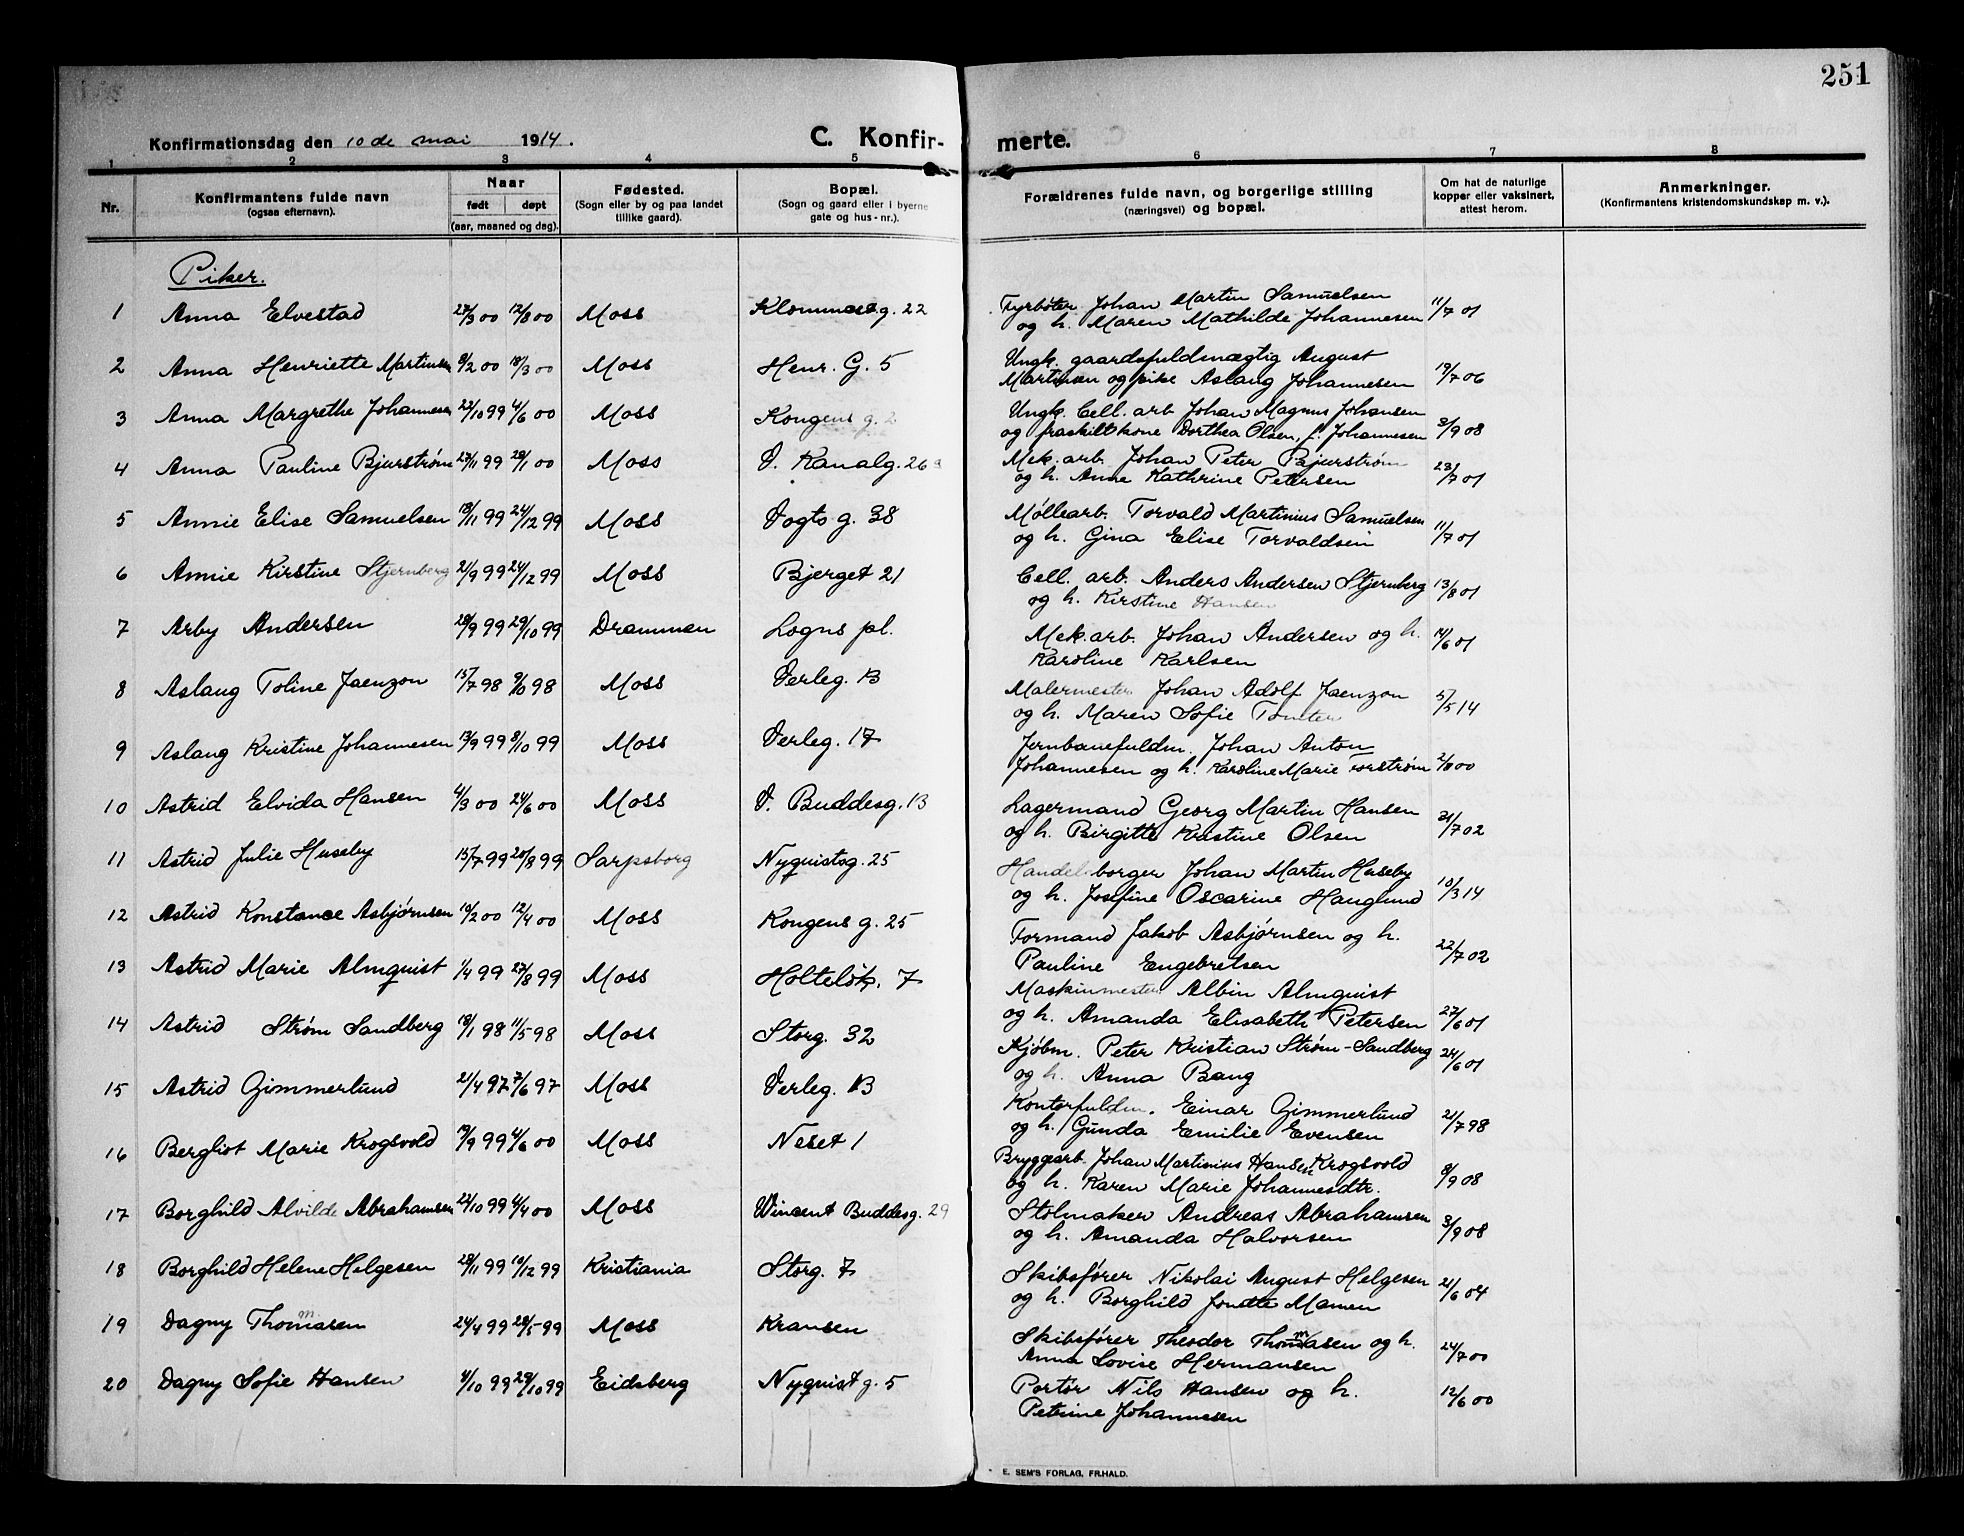 251
Konfirmationsdag den 10 de mai 1914. C. Konfir- merte.
1 2 3 4 5 6 7 8
Nr. Konfirmantens fulde navn (ogsaa efternavn). Naar født døpt (aar, maaned og dag). Fødested. (Sogn eller by og paa landet tillike gaard). Bopæl. (Sogn og gaard eller i byerne gate og hus-nr.). Forældrenes fulde navn, og borgerlige stilling (næringsvei) og bopæl. Om hat de naturlige kopper eller vaksinert, attest herom. Anmerkninger. (Konfirmantens kristendomskundskap m. v.).
Piker.
1 Anna Elvestad 27/3 00 12/8 00 Moss 22 Fyrbøter Johan Martin Samuelsen 11/7 01
og h. Maren Mathilde Johannesen
2 Anna Henriette Martinsen 8/2 00 18/3 00 Moss Henr. G. 5 Ungk. gaardsfuldmægtig August
Martinsen og pike Aslaug Johannesen 19/7 06
3 Anna Margrethe Johannesen 22/10 99 4/6 00 Moss Kongens g. 2 Ungk. Cell. arb. Johan Magnus Johansen
og fraskilt kone Dorthea Olsen, f. Johannesen 3/9 08
4 Anna Pauline Bjurstrøm 27/11 99 28/1 00 Moss V. Kanalg. 26 a Mek. arb. Johan Peter Bjurstrøm
og h. Anne Kathrine Petersen 23/7 01
5 Annie Elise Samuelsen 18/11 99 24/12 99 Moss Vogts g. 38 Møllearb. Torvald Martinius Samuelsen
og h. Gina Elise Torvaldsen 11/7 01
6 Annie Kirstine Stjernberg 21/9 99 24/12 99 Moss Bjerget 21 Cell. arb. Anders Andersen Stjernberg 13/8 01
og h. Kirstine Hansen
7 Arby Andersen 28/9 99 29/10 99 Drammen Logns pl. Mek. arb. Johan Andersen og h. 14/6 01
Karoline Karlsen
8 Aslaug Toline Jaenzon 15/7 98 9/10 98 Moss Verleg. 13 Malermester Johan Adolf Jaenzon
og h. Maren Sofie Tomter 5/5 14
9 Aslaug Kristine Johannesen 13/9 99 8/10 99 Moss Verleg. 17 Jernbanefuldm. Johan Anton
Johannesen og h. Karoline Marie Forstrøm 2/8 00
10 Astrid Elvida Hansen 4/3 00 24/6 00 Moss V. Buddesg. 13 Lagermand Georg Martin Hansen
og h. Birgitte Kristine Olsen 31/7 02
11 Astrid Julie Huseby 15/7 99 20/8 99 Sarpsborg Nyquistsg. 25 Handelsborger Johan Martin Huseby
og h. Josefine Oscarine Hauglund 10/3 14
12 Astrid Konstance Asbjørnsen 10/2 00 12/4 00 Moss Kongens g. 25 Formand Jakob Asbjørnsen og h.
Pauline Engebretsen 22/7 02
13 Astrid Marie Almquist 1/4 99 27/8 99 Moss Holteløk. 7 Maskinmester Albin Almquist
og h. Amanda Elisabeth Petersen 27/6 01
14 Astrid Strøm Sandberg 18/1 98 11/5 98 Moss Storg. 32 Kjøbm. Peter Kristian Strøm-Sandberg
og h. Anna Bang 24/6 01
15 Astrid Gimmerlund 21/4 97 7/6 97 Moss Verleg. 13 Kontorfuldm. Einar Gimmerlund
og h. Gunda Emilie Evensen 21/7 98
16 Bergliot Marie Krogsvold 19/9 99 4/6 00 Moss Neset 1 Bryggearb. Johan Martinius Hansen Krogsvold
og h. Karen Marie Johannesdtr. 8/9 08
17 Borghild Alvilde Abrahamsen 22/10 99 4/4 00 Moss Wincent Buddesg. 29 Stolmaker Andreas Abrahamsen
og h. Amanda Halvorsen 3/9 08
18 Borghild Helene Helgesen 28/11 99 10/12 99 Kristiania Storg. 7 Skibsfører Nikolai August Helgesen
og h. Borghild Mamen 21/6 04
19 Dagny Thommasen 24/4 99 28/5 99 Moss Kransen Skibsfører Theodor Thommasen og h.
Anna Lovise Hermansen 24/7 00
20 Dagny Sofie Hansen 4/10 99 29/10 99 Eidsberg Nyquist g. 5 Portør Nils Hansen og h. 12/6 00
Petrine Johannesen
E. SEM'S FORLAG, FR.HALD.